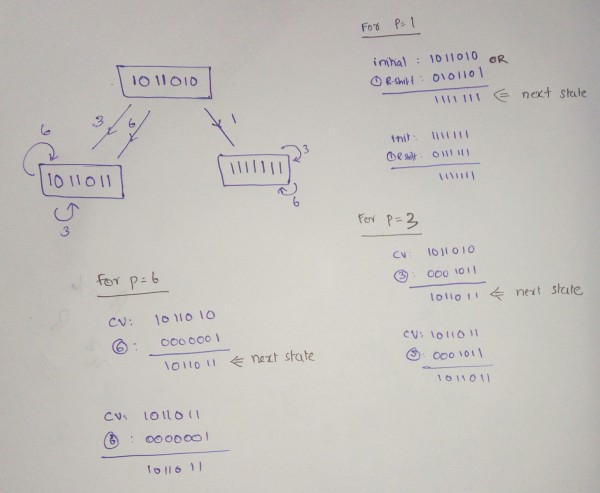 1011010
3
6
1
6
1011011
3
1111111
3
6
For P=1
initial : 1011010 OR
① R-shift : 0101101
1111111 ⇐ next state
init : 1111111
① R shift : 0111111
1111111
For P=3
CV: 1011010
③ : 0001011
1011011 ⇐ next state
CV: 1011011
③ : 0001011
1011011
For P=6
CV: 1011010
⑥ : 0000001
1011011 ⇐ next state
CV: 1011011
⑥ : 0000001
1011011